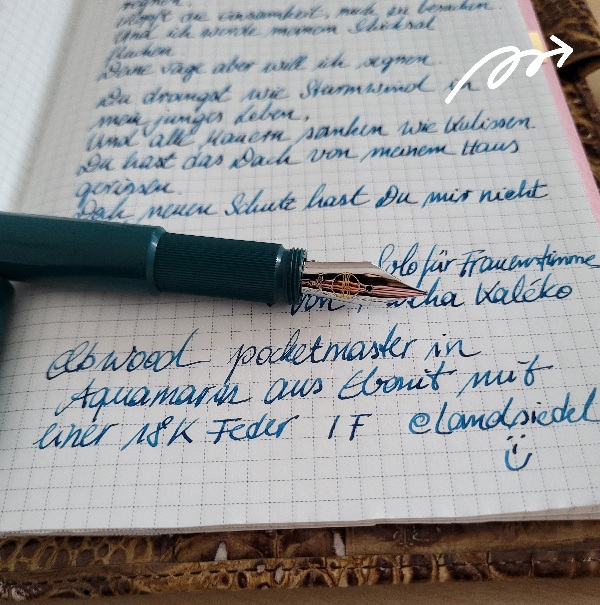 segnen.
Klopft die Einsamkeit, mich zu besuchen
Und ich werde meinem Schicksal
fluchen
Deine Tage aber will ich segnen.
Du drangst wie Sturmwind in
mein junges Leben,
Und alle Mauern sanken wie Kulissen.
Du hast das Dach von meinem Haus
gerissen.
Doch neuen Schutz hast Du mir nicht
Solo für Frauenstimme
von Kaléko
Elbwood pocketmaster in
Aquamarin aus Ebonit mit
einer 18K Feder 1F @landsiedel